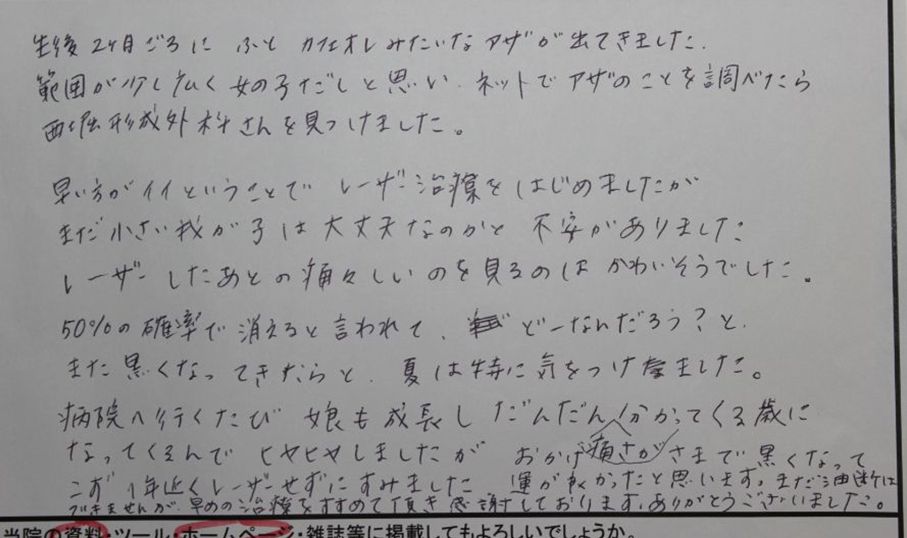 生後2ヶ月ごろに ふと カフェオレみたいなアザが出てきました.
範囲が少し広く 女の子だしと思い、ネットでアザのことを調べたら
西堀形成外科さんを見つけました。
早い方がイイということで レーザー治療をはじめましたが
まだ小さい我が子は大丈夫なのかと 不安がありました
レーザーしたあとの痛々しいのを見るのはかわいそうでした。
50%の確率で消えると言われて、 どーなんだろう?と、
また黒くなってきたらと、夏は特に気をつけました。
病院へ行くたび 娘も成長し だんだん痛さが分かってくる歳に
なってくるんで ヒヤヒヤしましたが おかげさまで黒くなって
こず 1年近くレーザーせずにすみました 運が良かったと思います。まだ油断は
できませんが、早めの治療をすすめて頂き感謝しております。ありがとうございました。
当院の資料・ツール・ホームページ・雑誌等に掲載してもよろしいでしょうか。